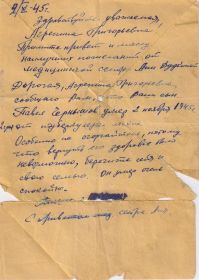 9/XI-45г.
Здравствуйте, уважаемая,
Агрепина Григорьевна
Примите привет и массу
наилучших пожеланий от
медицинской сестры
Дорогая, Агрепина Григорьевна,
сообщаю Вам, что Ваш сын
Павел умер 2 ноября 1945г.
Особенно не огорчайтесь, потому
что вернуть его здоровье было
невозможно, берегите себя и
свою семью. Он умер очень
спокойно.
С приветом мед. сестра